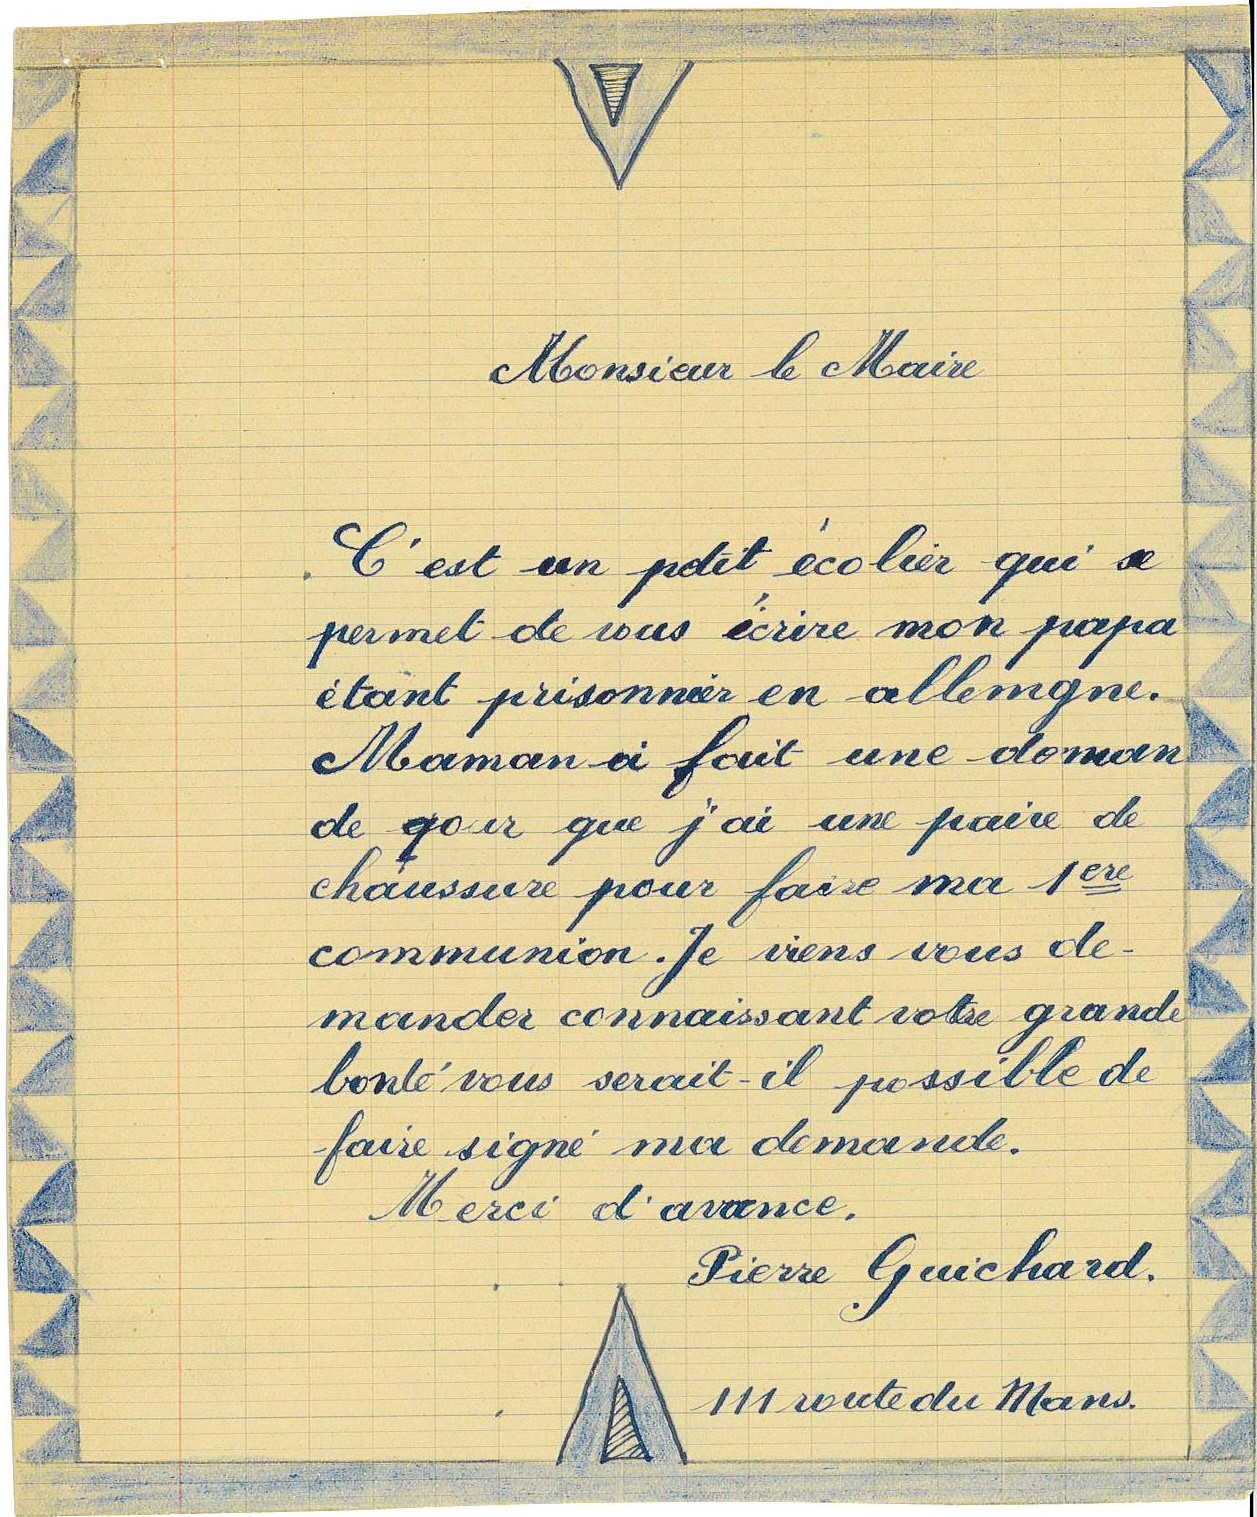 Monsieur le Maire
C'est un petit écolier qui se
permet de vous écrire mon papa
étant prisonnier en allemgne.
Maman a fait une deman
de pour que j'ai une paire de
chaussure pour faire ma 1ere
communion. Je viens vous de-
mander connaissant votre grande
bonté vous serait-il possible de
faire signé ma demande.
Merci d'avance.
Pierre Guichard.
111 route du Mans.